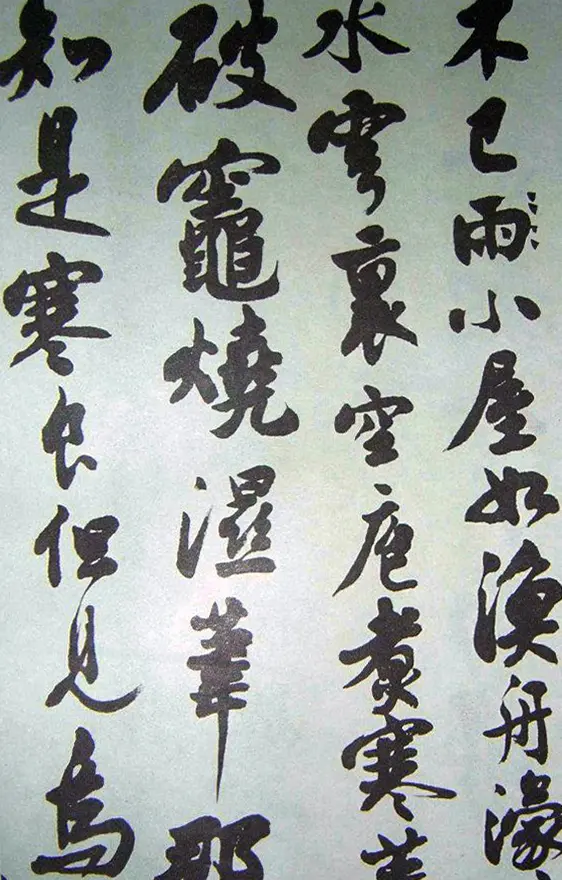 不已雨小屋如漁舟濛
水雲裏空庖煮寒菜
破竈燒濕葦那
知是寒食但見烏